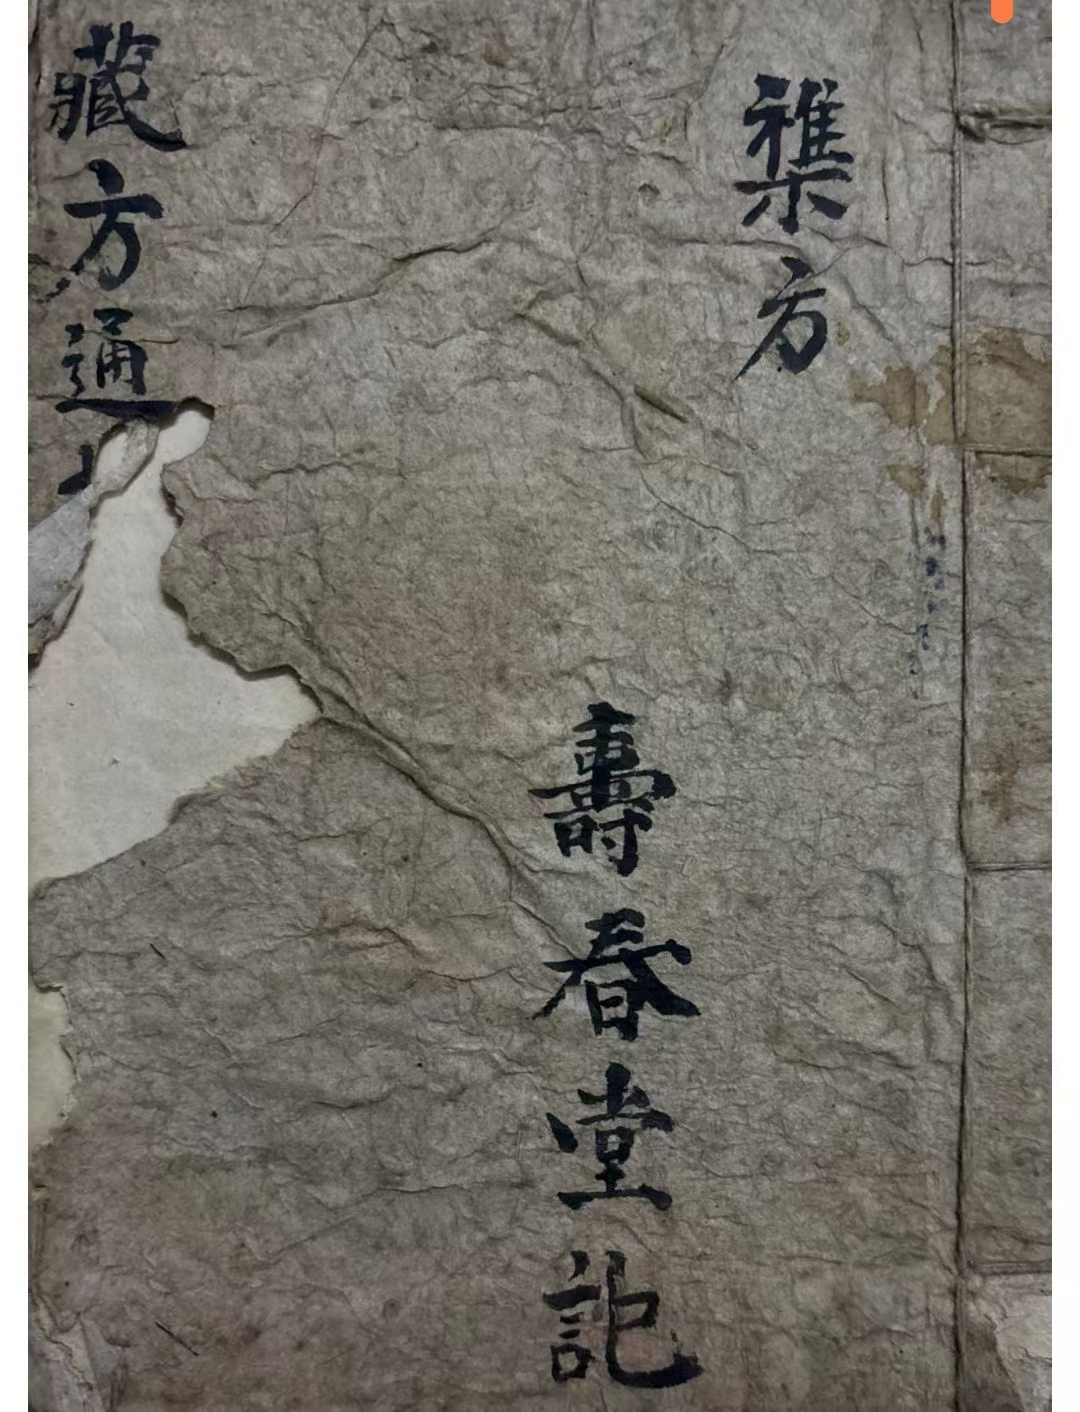 襍方
壽春堂記
藏方通